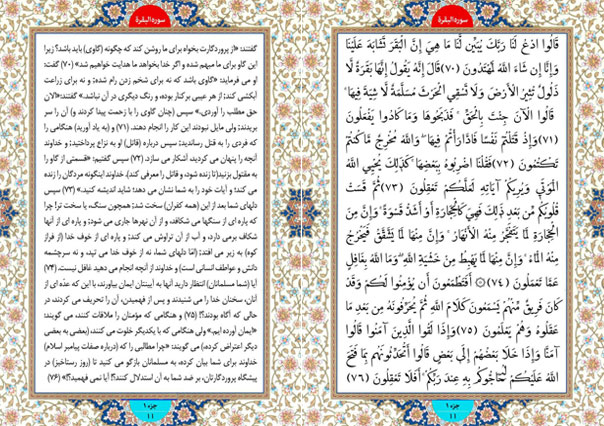 سورة البقرة
قَالُوا ادْعُ لَنَا رَبَّكَ يُبَيِّنْ لَنَا مَا هِيَ إِنَّ الْبَقَرَ تَشَابَهَ عَلَيْنَا
وَإِنَّا إِنْ شَاءَ اللَّهُ لَمُهْتَدُونَ ﴿۷۰﴾ قَالَ إِنَّهُ يَقُولُ إِنَّهَا بَقَرَةٌ لَا
ذَلُولٌ تُثِيرُ الْأَرْضَ وَلَا تَسْقِي الْحَرْثَ مُسَلَّمَةٌ لَا شِيَةَ فِيهَا
قَالُوا الْآنَ جِئْتَ بِالْحَقِّ فَذَبَحُوهَا وَمَا كَادُوا يَفْعَلُونَ
﴿۷۱﴾ وَإِذْ قَتَلْتُمْ نَفْسًا فَادَّارَأْتُمْ فِيهَا وَاللَّهُ مُخْرِجٌ مَا كُنْتُمْ
تَكْتُمُونَ ﴿۷۲﴾ فَقُلْنَا اضْرِبُوهُ بِبَعْضِهَا كَذَٰلِكَ يُحْيِي اللَّهُ
الْمَوْتَىٰ وَيُرِيكُمْ آيَاتِهِ لَعَلَّكُمْ تَعْقِلُونَ ﴿۷۳﴾ ثُمَّ قَسَتْ
قُلُوبُكُمْ مِنْ بَعْدِ ذَٰلِكَ فَهِيَ كَالْحِجَارَةِ أَوْ أَشَدُّ قَسْوَةً وَإِنَّ مِنَ
الْحِجَارَةِ لَمَا يَتَفَجَّرُ مِنْهُ الْأَنْهَارُ وَإِنَّ مِنْهَا لَمَا يَشَّقَّقُ فَيَخْرُجُ
مِنْهُ الْمَاءُ وَإِنَّ مِنْهَا لَمَا يَهْبِطُ مِنْ خَشْيَةِ اللَّهِ وَمَا اللَّهُ بِغَافِلٍ
عَمَّا تَعْمَلُونَ ﴿۷۴﴾ أَفَتَطْمَعُونَ أَنْ يُؤْمِنُوا لَكُمْ وَقَدْ
كَانَ فَرِيقٌ مِنْهُمْ يَسْمَعُونَ كَلَامَ اللَّهِ ثُمَّ يُحَرِّفُونَهُ مِنْ بَعْدِ مَا
عَقَلُوهُ وَهُمْ يَعْلَمُونَ ﴿۷۵﴾ وَإِذَا لَقُوا الَّذِينَ آمَنُوا قَالُوا
آمَنَّا وَإِذَا خَلَا بَعْضُهُمْ إِلَىٰ بَعْضٍ قَالُوا أَتُحَدِّثُونَهُمْ بِمَا فَتَحَ
اللَّهُ عَلَيْكُمْ لِيُحَاجُّوكُمْ بِهِ عِنْدَ رَبِّكُمْ أَفَلَا تَعْقِلُونَ ﴿۷۶﴾
جزء ۱
۱۱
سورة البقرة
گفتند: «از پروردگارت بخواه برای ما روشن کند که چگونه (گاوی) باید باشد؟ زیرا
این گاو برای ما مبهم شده و اگر خدا بخواهد ما هدایت خواهیم شد» (۷۰) گفت:
او می فرماید: «گاوی باشد که نه برای شخم زدن رام شده؛ و نه برای زراعت
آبکشی کند؛ از هر عیبی برکنار بوده، و رنگ دیگری در آن نباشد.» گفتند: «الان
حق مطلب را آوردی.» سپس (چنان گاوی را با زحمت پیدا کردند و) آن را سر
بریدند؛ ولی مایل نبودند این کار را انجام دهند. (۷۱) و (به یاد آورید) هنگامی را
که فردی را به قتل رساندید؛ سپس درباره (قاتل) او به نزاع پرداختید؛ و خداوند
آنچه را پنهان می کردید، آشکار می سازد. (۷۲) سپس گفتیم: «قسمتی از گاو را
به مقتول بزنید (تا زنده شود، و قاتل را معرفی کند). خداوند اینگونه مردگان را زنده
می کند؛ و آیات خود را به شما نشان می دهد؛ شاید اندیشه کنید.» (۷۳) سپس
دلهای شما بعد از این (همه) سخت شد؛ همچون سنگ، یا سخت تر! چرا
که پاره ای از سنگها می شکافد، و از آن نهرها جاری می شود؛ و پاره ای از آنها
شکاف برمی دارد، و آب از آن تراوش می کند؛ و پاره ای از خوف خدا (از فراز
کوه) به زیر می افتد؛ (امّا دلهای شما، نه از خوف خدا می تپد، و نه سرچشمه
دانش و عواطف انسانی است) و خداوند از آنچه انجام می دهید غافل نیست. (۷۴)
آیا (شما مسلمانان) انتظار دارید آنها به آیینتان ایمان بیاورند، با این که عدّه ای از
آنان، سخنان خدا را می شنیدند و پس از فهمیدن، آن را تحریف می کردند در
حالی که آگاه بودند؟! (۷۵) و هنگامی که مؤمنان را ملاقات کنند، می گویند:
«ایمان آورده ایم.» ولی هنگامی که با یکدیگر خلوت می کنند، (بعضی به بعضی
دیگر اعتراض کرده،) می گویند: «چرا مطالبی را که (درباره صفات پیامبر اسلام)
خداوند برای شما بیان کرده، به مسلمانان بازگو می کنید تا (روز رستاخیز) در
پیشگاه پروردگارتان، بر ضد شما به آن استدلال کنند؟! آیا نمی فهمید؟!» (۷۶)
جزء ۱
۱۱